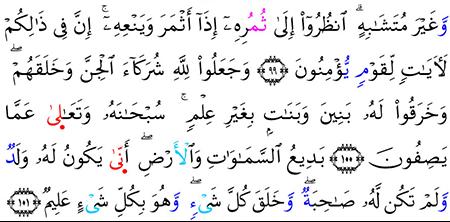 وَّغَيْرَ مُتَشَـٰبِهٍ ۗ ٱنظُرُوٓا۟ إِلَىٰ ثُمُرِهِۦٓ إِذَآ أَثْمَرَ وَيَنْعِهِۦٓ ۚ إِنَّ فِى ذَٰلِكُمْ
لَأٓيَـٰتٍ لِّقَوْمٍ يُّؤْمِنُونَ ﴿٩٩﴾ وَجَعَلُوا۟ لِلَّهِ شُرَكَآءَ ٱلْجِنَّ وَخَلَقَهُمْ ۖ
وَخَرَقُوا۟ لَهُۥ بَنِينَ وَبَنَـٰتٍۭ بِغَيْرِ عِلْمٍ ۚ سُبْحَـٰنَهُۥ وَتَعَـٰلَىٰ عَمَّا
يَصِفُونَ ﴿١٠٠﴾ بَدِيعُ ٱلسَّمَـٰوَٰتِ وَٱلْأَرْضِ ۖ أَنَّىٰ يَكُونُ لَهُۥ وَلَدٌ
وَّلَمْ تَكُن لَّهُۥ صَـٰحِبَةٌ ۖ وَّخَلَقَ كُلَّ شَىْءٍ ۖ وَّهُوَ بِكُلِّ شَىْءٍ عَلِيمٌ ﴿١٠١﴾